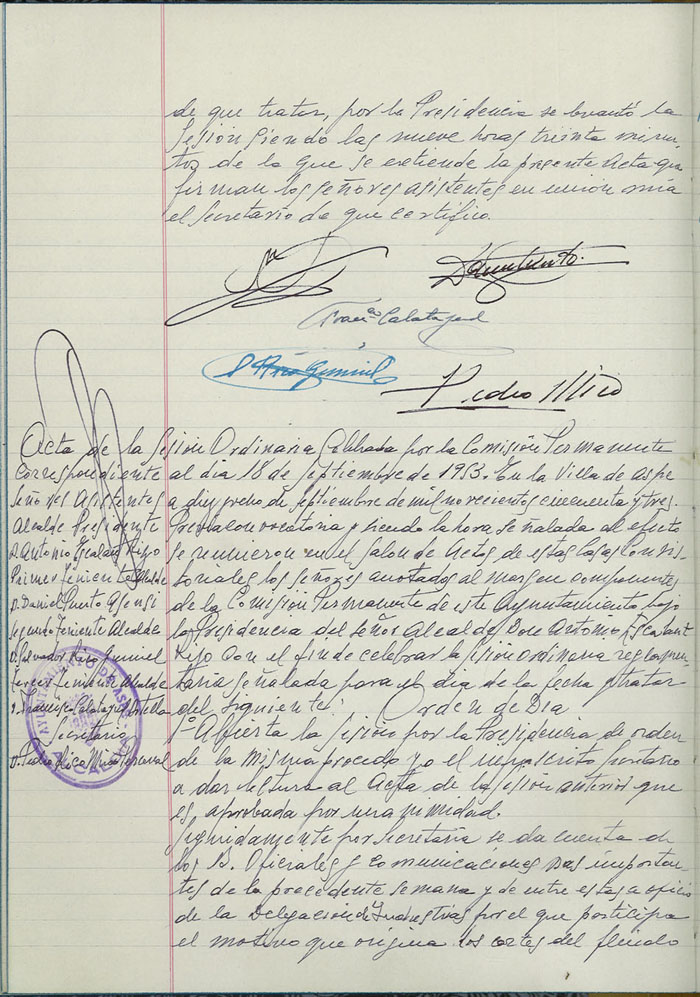 de que tratar, por la Presidencia se levantó la
Sesión siendo las nueve horas treinta minu-
tos de la que se extiende la presente Acta que
firman los señores asistentes en union mia
el Secretario de que certifico.
Fran.co Calatayud
Pedro Mico
Acta de la Sesión Ordinaria Celebrada por la Comisión Permanente
Correspondiente al dia 18 de Septiembre de 1953. En la Villa de Aspe
Señores Asistentes
a diez y ocho de Septiembre de mil novecientos cincuenta y tres.
Alcalde Presidente
Previa convocatoria y siendo la hora señalada al efecto
D. Antonio Escalant Hijo
se reunieron en el Salon de Actos de estas Casas Consis-
Primer Teniente Alcalde
toriales los señores anotados al margen componentes
D. Daniel Puerto Asensi
de la Comisión Permanente de este Ayuntamiento bajo
Segundo Teniente Alcalde
la Presidencia del Señor Alcalde Don Antonio Escalant
D. Salvador
Hijo con el fin de celebrar la Sesión Ordinaria reglamen-
Tercer Teniente Alcalde
taria señalada para el dia de la fecha y tratar
D. Francisco Calatayud
del siguiente: Orden de Dia
Secretario
1º Abierta la Sesión por la Presidencia de orden
de la misma procedo yo el infrascrito Secretario
D. Pedro
a dar lectura al Acta de la Sesión anterior que
es, aprobada por unanimidad.
Seguidamente por Secretaria se da cuenta de
los B. Oficiales y comunicaciones mas importan-
tes de la precedente semana y de entre estas a oficio
de la Delegación de Industrias por el que participa
el motivo que origina los cortes del fluido
ALCALDIA